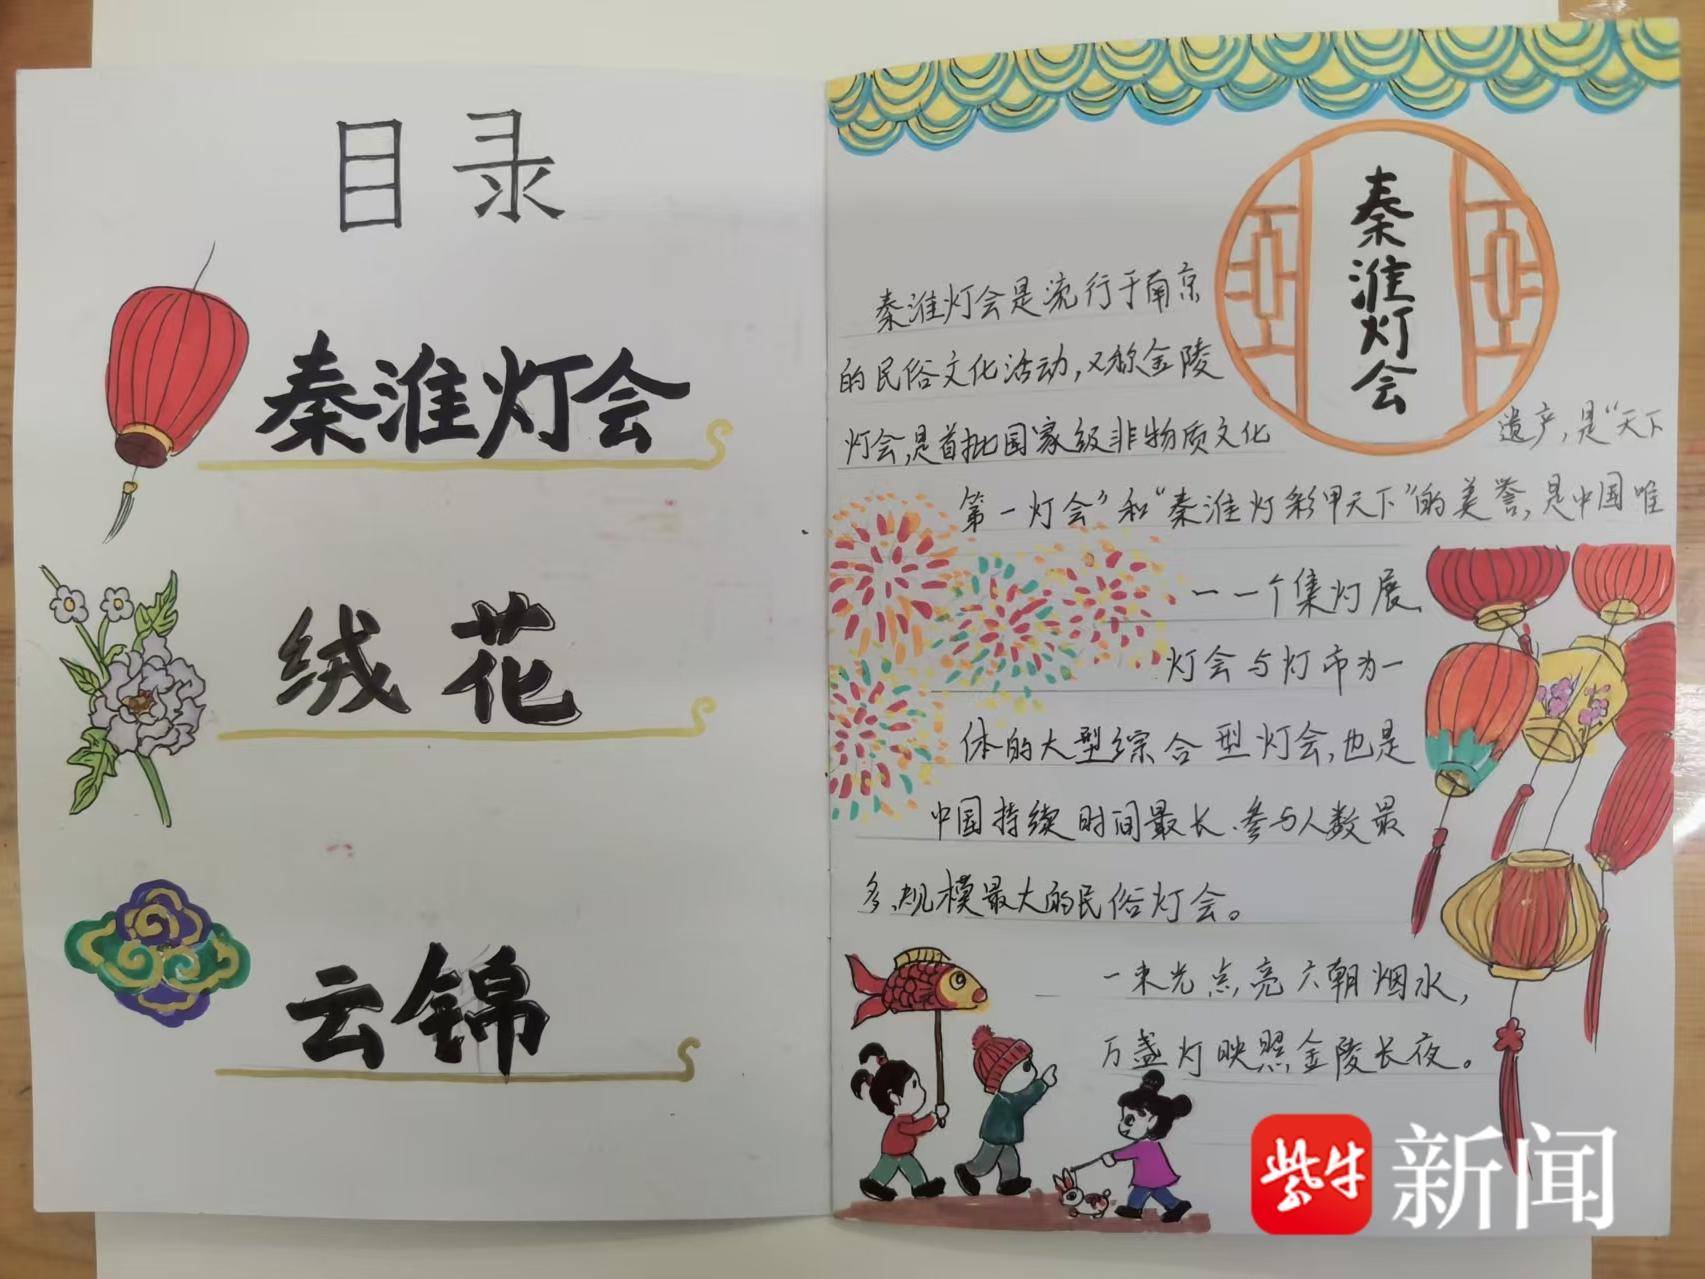 目录
秦淮灯会
绒花
云锦
秦淮灯会
秦淮灯会是流行于南京
的民俗文化活动,又称金陵
灯会,是首批国家级非物质文化
遗产,是“天下
第一灯会”和“秦淮灯彩甲天下”的美誉,是中国唯
一一个集灯展、
灯会与灯市为一
体的大型综合型灯会,也是
中国持续时间最长、参与人数最
多、规模最大的民俗灯会。
一束光点亮六朝烟水,
万盏灯映照金陵长夜。
紫牛新闻